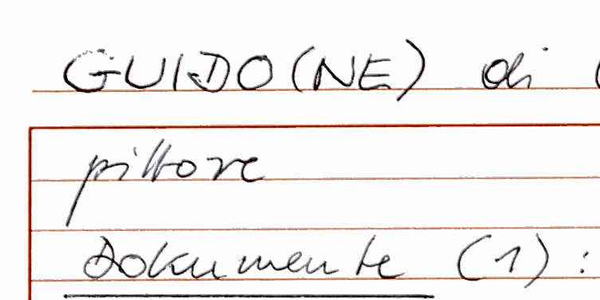 GUIDO(NE) di (
pittore
Dokumente (1):